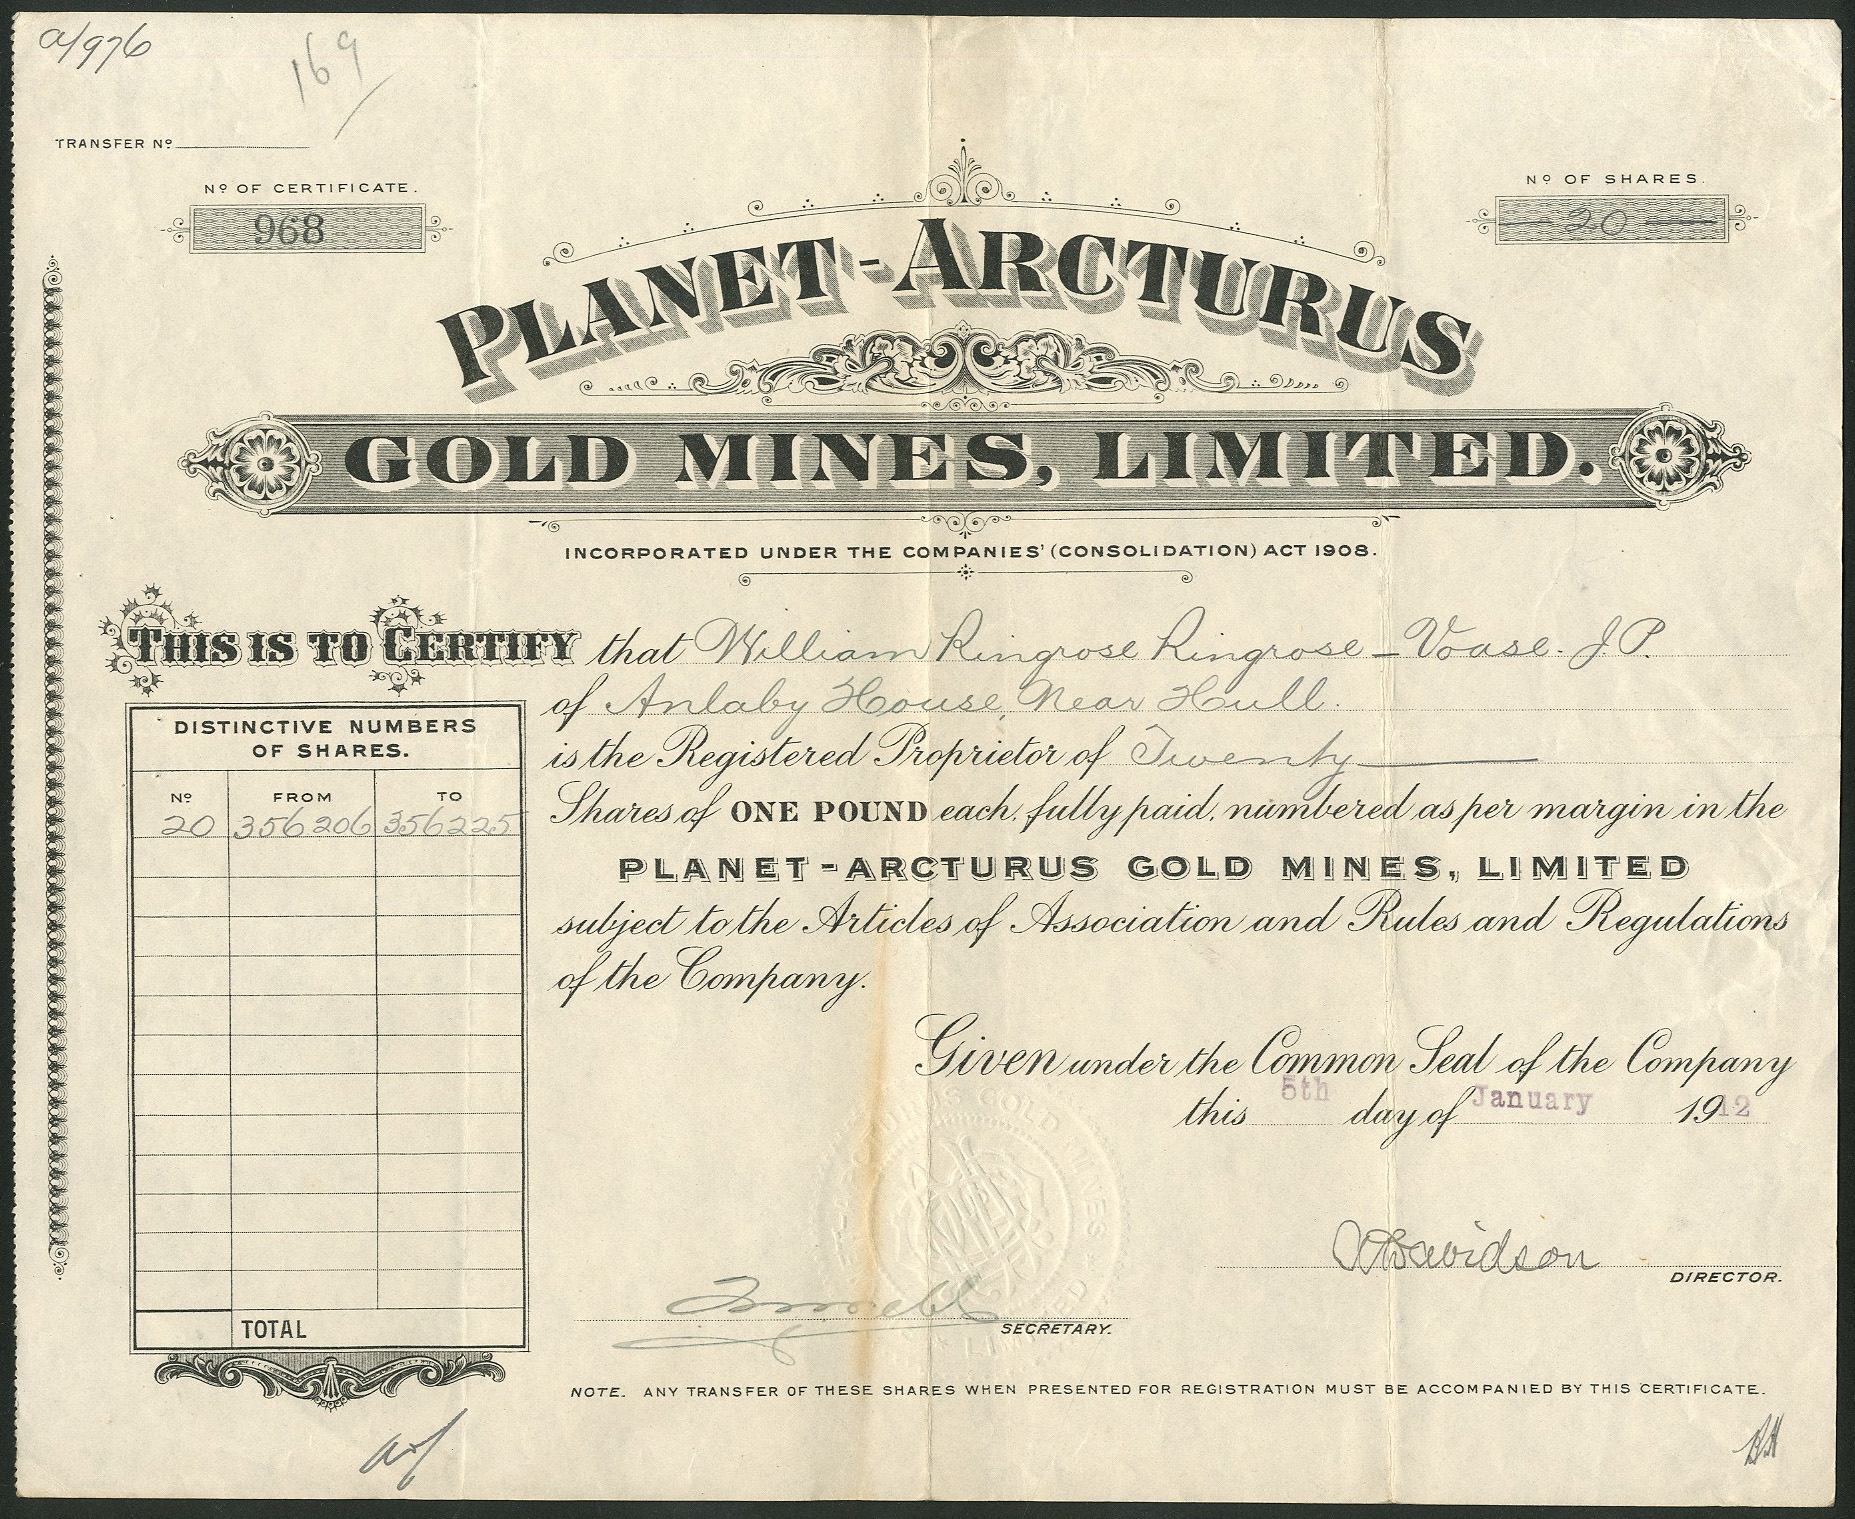 a/976
169/
TRANSFER Nº
Nº OF CERTIFICATE.
968
Nº OF SHARES.
20
PLANET-ARCTURUS
GOLD MINES, LIMITED.
INCORPORATED UNDER THE COMPANIES' (CONSOLIDATION) ACT 1908.
THIS IS TO CERTIFY that William Ringrose Ringrose-Voase. J.P.
of Anlaby House, Near Hull.
is the Registered Proprietor of Twenty
Shares of ONE POUND each, fully paid, numbered as per margin in the
PLANET-ARCTURUS GOLD MINES, LIMITED
subject to the Articles of Association and Rules and Regulations
of the Company.
DISTINCTIVE NUMBERS
OF SHARES.
Nº FROM TO
20 356206 356225
TOTAL
Given under the Common Seal of the Company
this 5th day of January 1912
Davidson
DIRECTOR.
SECRETARY.
NOTE. ANY TRANSFER OF THESE SHARES WHEN PRESENTED FOR REGISTRATION MUST BE ACCOMPANIED BY THIS CERTIFICATE.